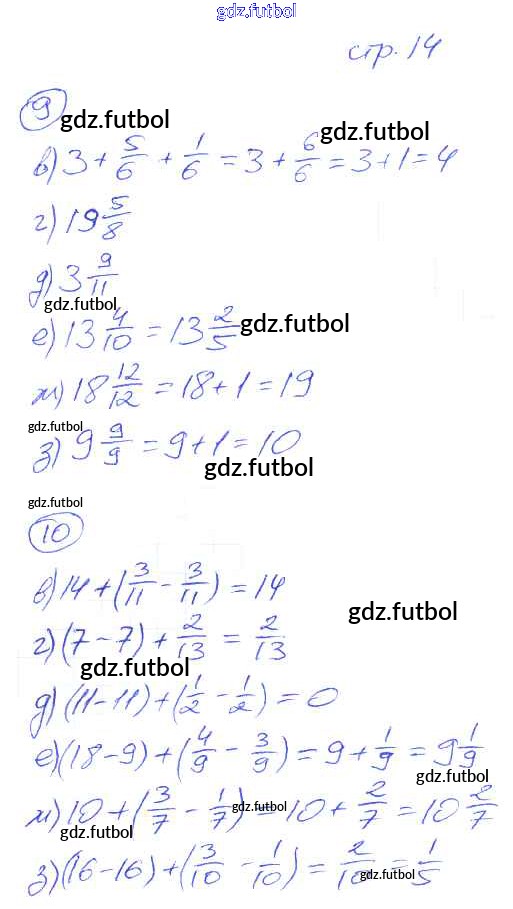 gdz.futbol
стр. 14
9
gdz.futbol
gdz.futbol
в) 3 + 5/6 + 1/6 = 3 + 6/6 = 3 + 1 = 4
г) 19 5/8
д) 3 9/11
gdz.futbol
е) 13 4/10 = 13 2/5
gdz.futbol
ж) 18 12/12 = 18 + 1 = 19
gdz.futbol
з) 9 9/9 = 9 + 1 = 10
gdz.futbol
gdz.futbol
10
в) 14 + (3/11 - 3/11) = 14
gdz.futbol
г) (7 - 7) + 2/13 = 2/13
gdz.futbol
д) (11 - 11) + (1/2 - 1/2) = 0
е) (18 - 9) + (4/9 - 3/9) = 9 + 1/9 = 9 1/9
gdz.futbol
ж) 10 + (3/7 - 1/7) = 10 + 2/7 = 10 2/7
gdz.futbol
gdz.futbol
з) (16 - 16) + (3/10 - 1/10) = 2/10 = 1/5
gdz.futbol